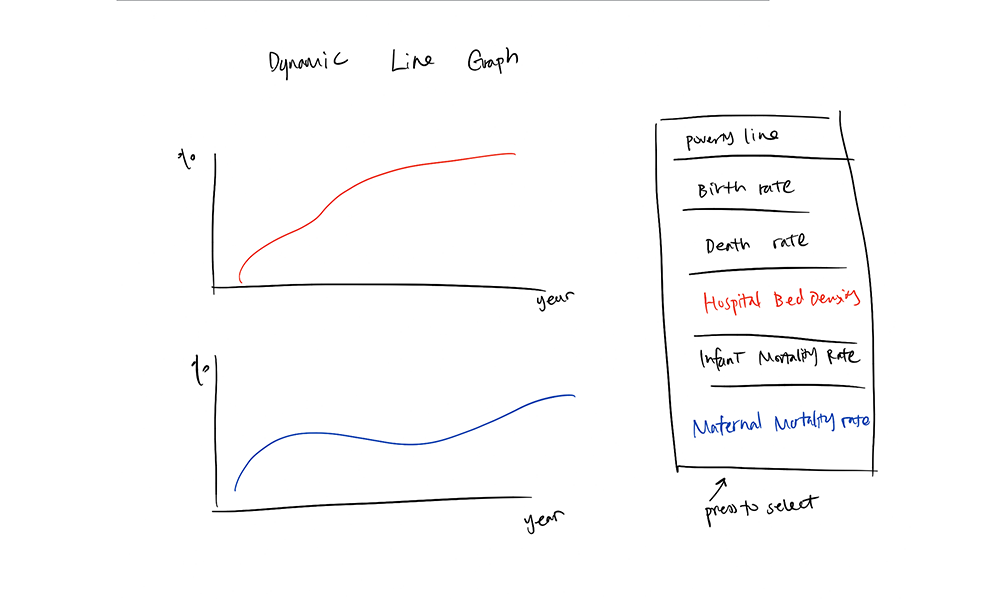 Dynamic Line Graph
%
year
%
year
Poverty line
Birth rate
Death rate
Hospital Bed Density
Infant Mortality Rate
Maternal Mortality rate
press to select